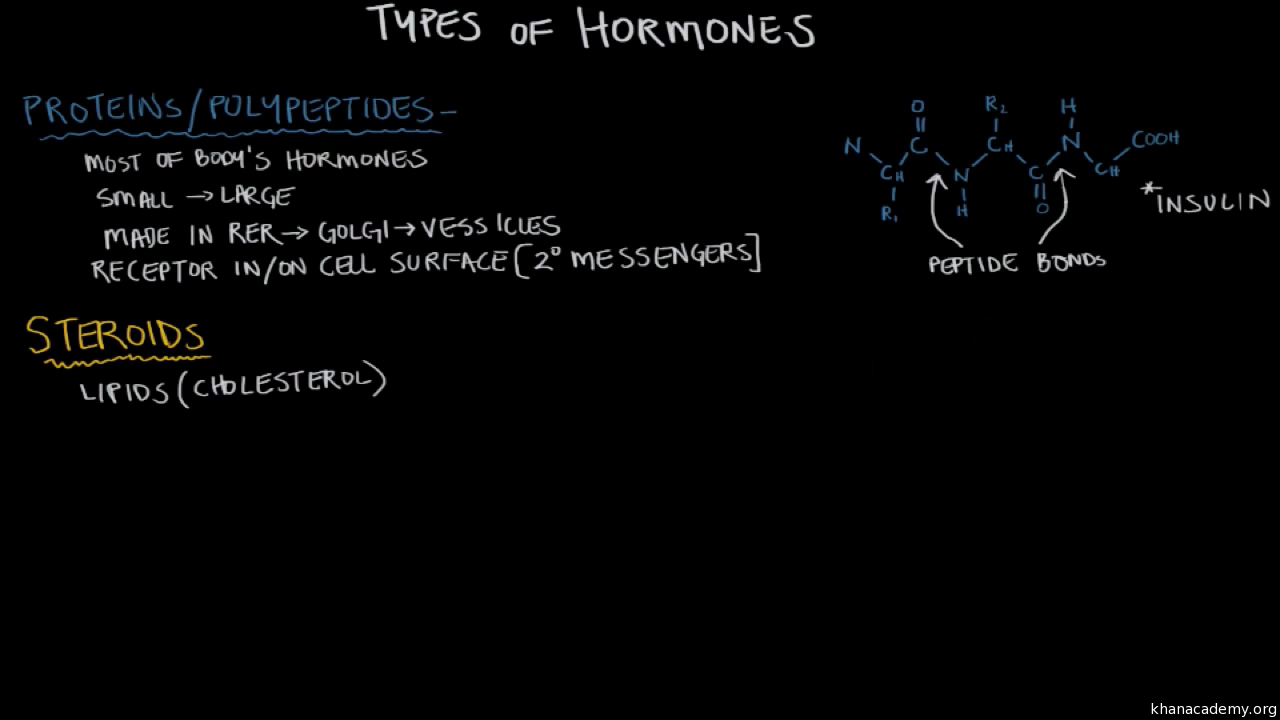 TYPES OF HORMONES
PROTEINS/POLYPEPTIDES-
MOST OF BODY'S HORMONES
SMALL → LARGE
MADE IN RER→ GOLGI→VESSICLES
RECEPTOR IN/ON CELL SURFACE[2° MESSENGERS]
O R2 H
N C CH N COOH
CH N C CH
R1 H O
*INSULIN
PEPTIDE BONDS
STEROIDS
LIPIDS (CHOLESTEROL)
khanacademy.org